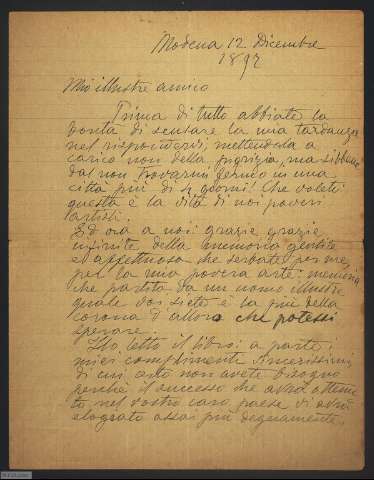 Modena 12 Dicembre
1897
Mio illustre amico
Prima di tutto abbiate la
bontà di scusare la mia tardanza
nel rispondervi, mettendola a
carico non della pigrizia, ma sibbene
dal non trovarmi fermo in una
città più di 4 giorni! Che volete
questa è la vita di noi poveri
artisti.
Ed ora a noi: grazie grazie
infinite della memoria gentile
e affettuosa che serbate per me
per la mia povera arte: memoria
che partita da un uomo illustre
quale voi siete è la più bella
corona d'alloro che potessi
sperare.
Ho letto il libro: a parte i
miei complimenti sincerissimi
di cui certo non avete bisogno
perchè il successo che avrà ottenu
to nel vostro caro paese vi avrà
elogiato assai più degnamente,